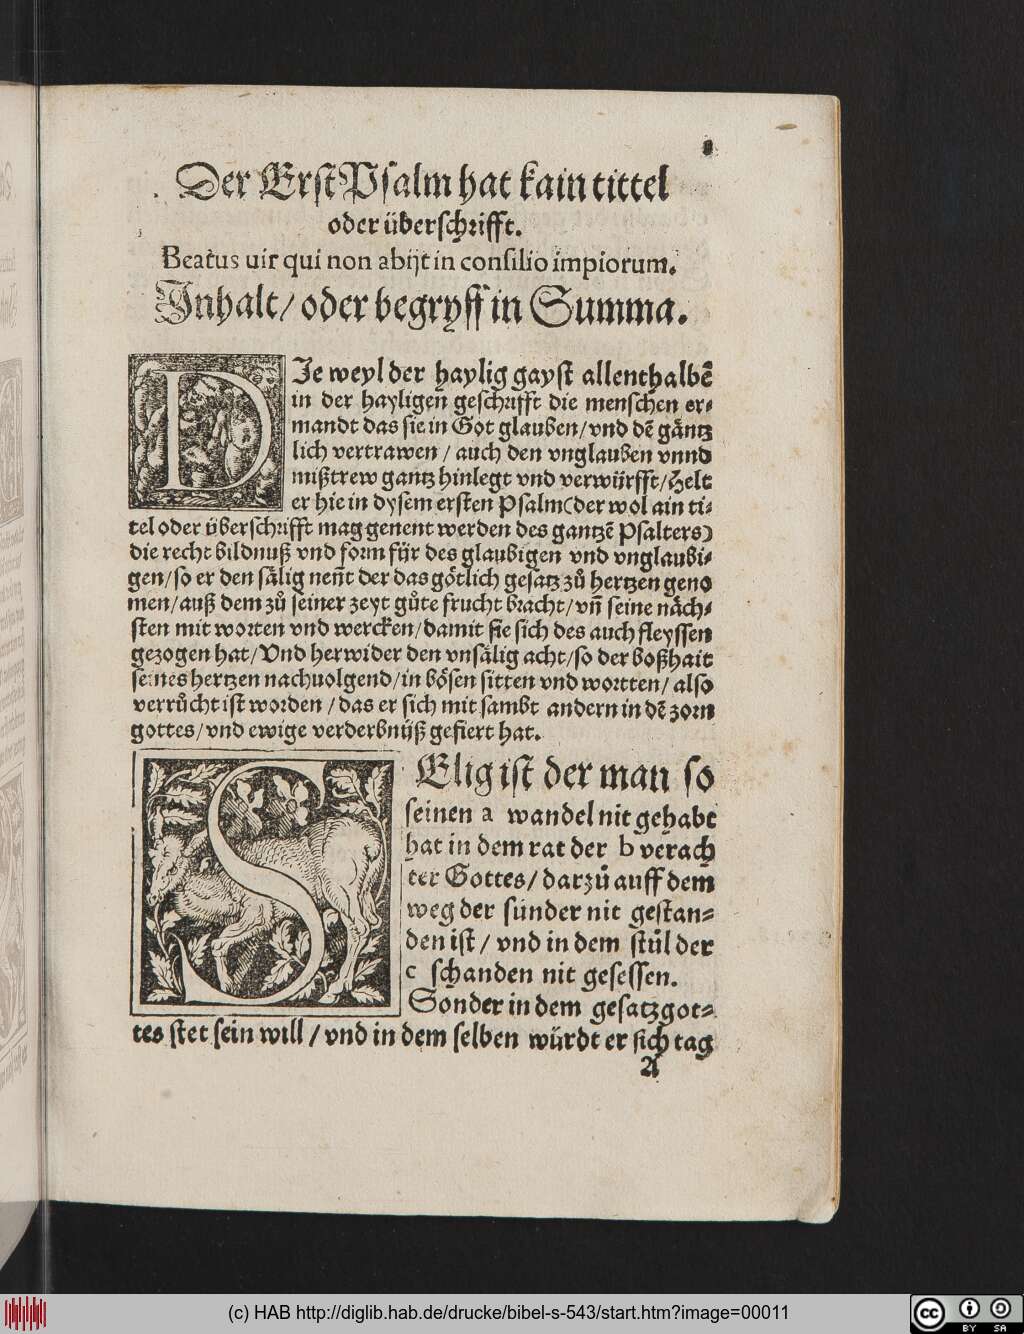 Der Erst Psalm hat kain tittel
oder überschrifft.
Beatus uir qui non abijt in consilio impiorum.
Inhalt/ oder begryff in Summa.
DIe weyl der haylig gayst allenthalbē
in der hayligen geschrifft die menschen er-
mandt das sie in Got glauben/vnd dē gäntz
lich vertrawen / auch den vnglauben vnnd
mißtrew gantz hinlegt vnd verwürfft/Helt
er hie in dysem ersten Psalm(der wol ain ti-
tel oder überschrifft mag genent werden des gantzē Psalters)
die recht bildnuß vnd form für des glaubigen vnd vnglaubi-
gen/so er den sälig neñt der das götlich gesatz zů hertzen geno
men/auß dem zů seiner zeyt gůte frucht bracht/vñ seine näch-
sten mit worten vnd wercken/damit sie sich des auch fleyssen
gezogen hat/Vnd herwider den vnsälig acht/so der boßhait
seines hertzen nachuolgend/in bösen sitten vnd wortten/ also
verrůcht ist worden /das er sich mit sambt andern in dē zorn
gottes/vnd ewige verderbnüß gefiert hat.
SElig ist der man so
seinen a wandel nit gehabt
hat in dem rat der b verach
ter Gottes/ darzů auff dem
weg der sünder nit gestan-
den ist / vnd in dem stůl der
c schanden nit gesessen.
Sonder in dem gesatz got-
tes stet sein will / vnd in dem selben würdt er sich tag
A
(c) HAB http://diglib.hab.de/drucke/bibel-s-543/start.htm?image=00011
cc BY SA